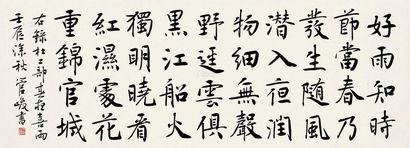 好雨知時
節當春乃
發生隨風
潛入夜潤
物細無聲
野逕雲俱
黑江船火
獨明曉看
紅濕處花
重錦官城
右錄杜工部春夜喜雨
壬辰深秋管峻書